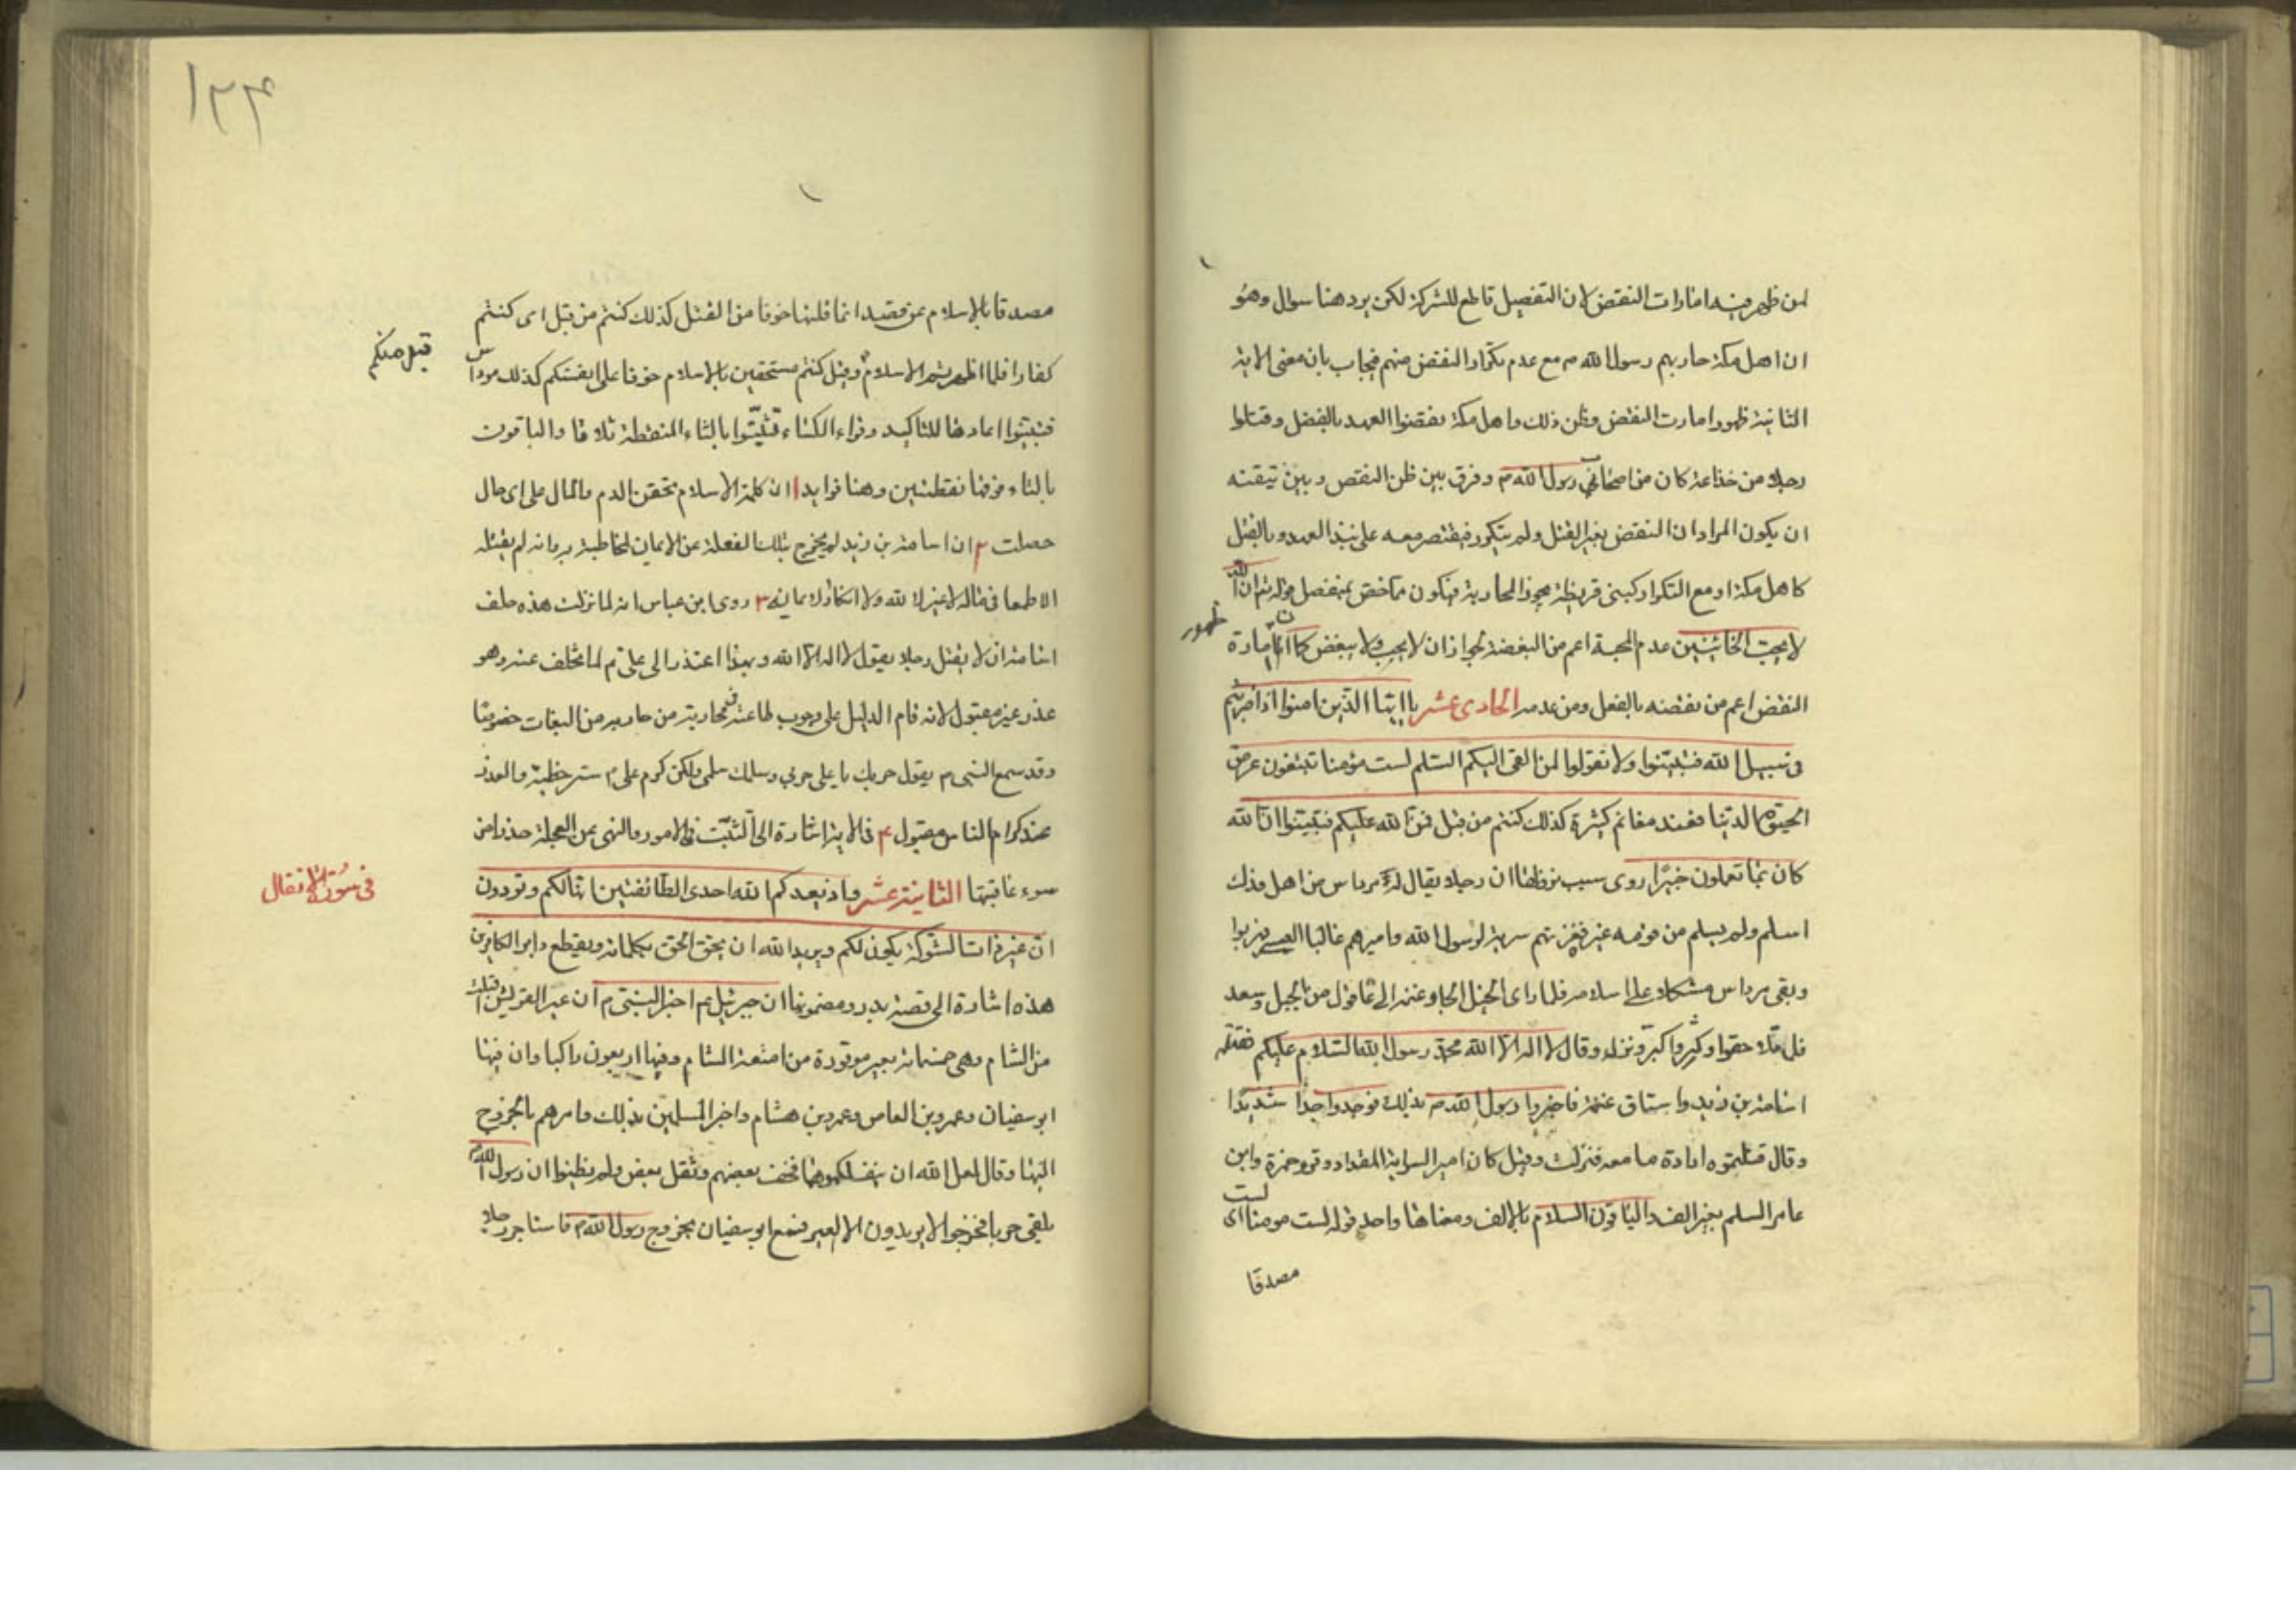 لمن ظهر منه امارات النقض لان التفصيل قاطع للشركة لكن يرد هنا سوال وهو
ان اهل مكة حاربهم رسول الله ص مع عدم تكرار النقض منهم فيجاب بان معنى الاية
الثانية ظهور امارت النقض وظن ذلك واهل مكة نقضوا العهد بالفعل وقتلوا
رجلا من خذاعة كان من رسول الله ص وفرق بين ظن النقص وبين تيقنه
ان يكون المراد ان النقض بغير القتل ولم يتكرر فيقتصر معه على نبذ العهد وبالقتل
كاهل مكة او مع التكرار كبنى قريظة مجوز المحاربة فيكون مخصص بمنفصل قوله ان الله
لا يحب الخائنين عدم المحبة اعم من البغضة لجواز ان لا يحب ولا يبغض كما ان امارة
ظهور
النقض اعم من نقضه بالفعل ومن عدمه الحادى عشر يا ايها الذين امنوا اذا ضربتم
فى سبيل الله فتبيّنوا ولا تقولوا لمن القى اليكم السّلم لست مؤمنا تبتغون عرض
الحيوة الدنيا فعند الله مغانم كثيرة كذلك كنتم من قبل فمنّ الله عليكم فتبيّنوا انّ الله
كان بما تعملون خبيرًا روى سبب نزولها ان رجلا يقال له مرداس من اهل فدك
اسلم ولم يسلم من قومه غيره فغزتهم سرية لرسول الله واميرهم غالب فهربوا
وبقى مرداس متكلا على اسلامه فلما راى الخيل الجا وغنمه الى عاقول من الجبل وصعد
فلما تلاحقوا وكبّروا كبّر ونزل وقال لا اله الا الله محمّد رسول الله السّلام عليكم فقتله
اسامة بن زيد واستاق غنمه فاخبروا رسول الله ص بذلك فوجد وجدًا شديدًا
وقال قتلتموه ارادة ما معه فنزلت وقيل كان امير السراية المقداد وقرء حمزة وابن
عامر السلم بغير الف والباقون السلام بالالف ومعناها واحد قوله لست مومنا اى لست
مصدقا
۱۳۴
مصدقا بالاسلام عن قصد انما قلتها خوفا من القتل كذلك كنتم من قبل اى كنتم
كفارا فلما اظهرتم الاسلام وقيل كنتم مستخفين بالاسلام خوفا على انفسكم كذلك مرداس
قبل منكم
فتبيّنوا اعادها للتاكيد وقراء الكساء فتثبّتوا بالثاء المنقطة ثلاثا والباقون
بالتاء فوقها نقطتين وهنا فوايد ا ان كلمة الاسلام تحقن الدم والمال على اى حال
حصلت ۲ ان اسامة بن زيد لم يخرج بتلك الفعلة عن الايمان لمخاطبة بر وانه لم يقتله
الا طمعا فى ماله لا غير لا لله ولا انكار لايمانه ۳ روى ابن عباس انه لما نزلت هذه حلف
اسامة ان لا يقتل رجلا يقول لا اله الا الله وبهذا اعتذر الى على ع لما تخلف عنه وهو
عذر غير مقبول لانه قام الدليل على وجوب طاعته فى محاربته من حاربه من البغات خصوصًا
وقد سمع النبى ص يقول حربك يا على حربى وسلمك سلمى ولكن كرم على ع ستر خطيته والعذر
عند كرام الناس مقبول ۴ فى الاية اشارة الى التثبّت فى الامور والنهى عن العجلة حذرا من
سوء عاقبتها الثانية عشر واذ يعدكم الله احدى الطّائفتين انّها لكم وتودون
فى سورة الانفال
انّ غير ذات الشوكة يكون لكم ويريد الله ان يحقّ الحقّ بكلماته ويقطع دابر الكافرين
هذه اشارة الى قصّة بدر ومضمونها ان جبرئيل ع اخبر النبىّ ص ان عير القريش اقبلت
من الشام وهى خمسمائة بعير موقورة من امتعة الشام وفيها اربعون راكبا وان فيها
ابو سفيان وعمرو بن العاص وعمرو بن هشام واخبر المسلمين بذلك وامرهم بالخروج
اليها وقال لعل الله ان ينفلكموها فخف بعضهم وثقل بعض ولم يظنوا ان رسول الله ص
يلقى حربا فخرجوا لا يريدون الا العير فسمع ابو سفيان بخروج رسول الله ص فاستاجر رجلا